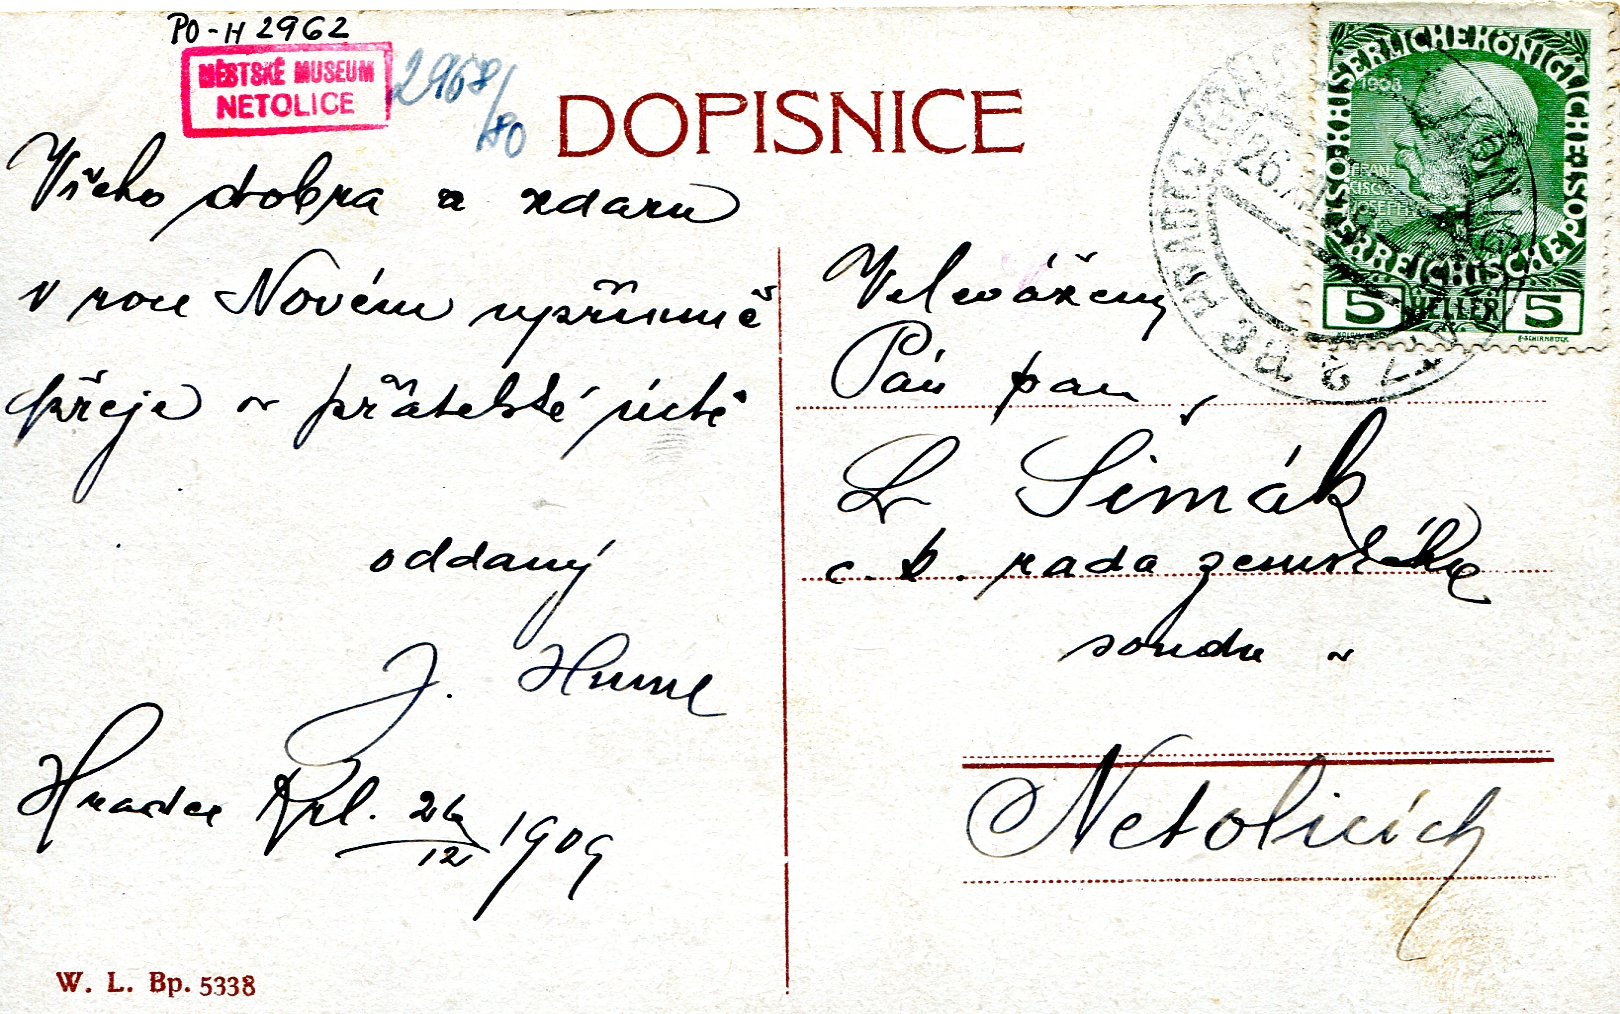 PO-H 2962
MĚSTSKÉ MUSEUM
NETOLICE
2968/80
DOPISNICE
Všeho dobra a zdaru
v roce Novém upřímně
přeje v přátelské úctě
oddaný
J. Huml
Hradec Král. 26/12 1909
W. L. Bp. 5338
Velevážený
Pán pan
Šimák
c. k. rada zemského
soudu v
Netolicích
KAISERLICHE KÖNIGLICHE ÖSTERREICHISCHE POST
1908
FRANCISCVS JOSEPH I
5 HELLER 5
26.